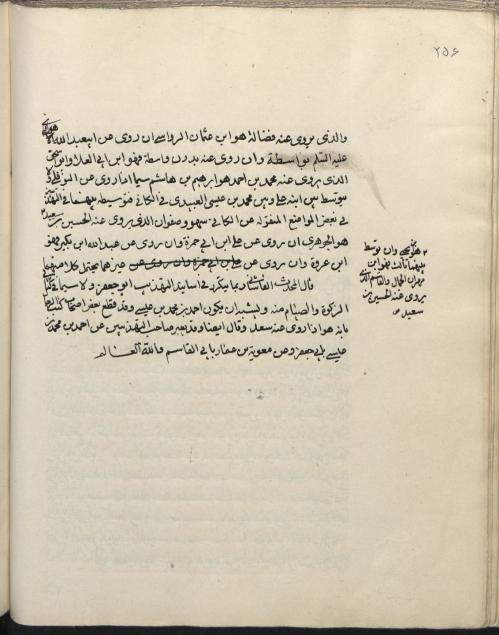 ٢٥۶
والذى يروى عنه فضالة هو ابن عثمان الرواسى ان روى عن ابيعبد الله
عليه السلام بواسطة وان روى عنه بدون واسطة فهو ابن ابى العلا وابو
الذى يروى عنه محمد بن احمد هو ابرهيم بن هاشم سيما اذا روى عن النوفلى
توسط بين ابنه على وبين محمد بن عيسى العبيدى فى الكافى فتوسيطه بينهما فى التهذيب
فى بعض المواضع المنقوله عن الكافى سهو وصفوان الذى يروى عنه الحسين بن سعيد
هو الجوهرى ان روى عن على بن ابى حمزة وان روى عن عبد الله ابن بكير فهو
ابن عروة وان روى عن غيرهما يحتمل كلا منهما
قال المحدث القاشانى ربما يتكرر فى اسانيد التهذيب ابو جعفر ولا سيما فى كتابى
الزكوة والصيام منه ويشبه ان يكون احمد بن محمد بن عيسى وقد قطع بعض اصحابنا
بانه هو اذا روى عنه سعد وقال ايضا وقد يعبر صاحب التهذيبين عن احمد بن محمد بن
عيسى بابى جعفر وعن معوية بن عمار بابى القاسم والله العالم
وان توسط
بينهما ثالث فهو ابن
مهران الجمال والقاسم الذى
يروى عنه الحسين بن
سعيد